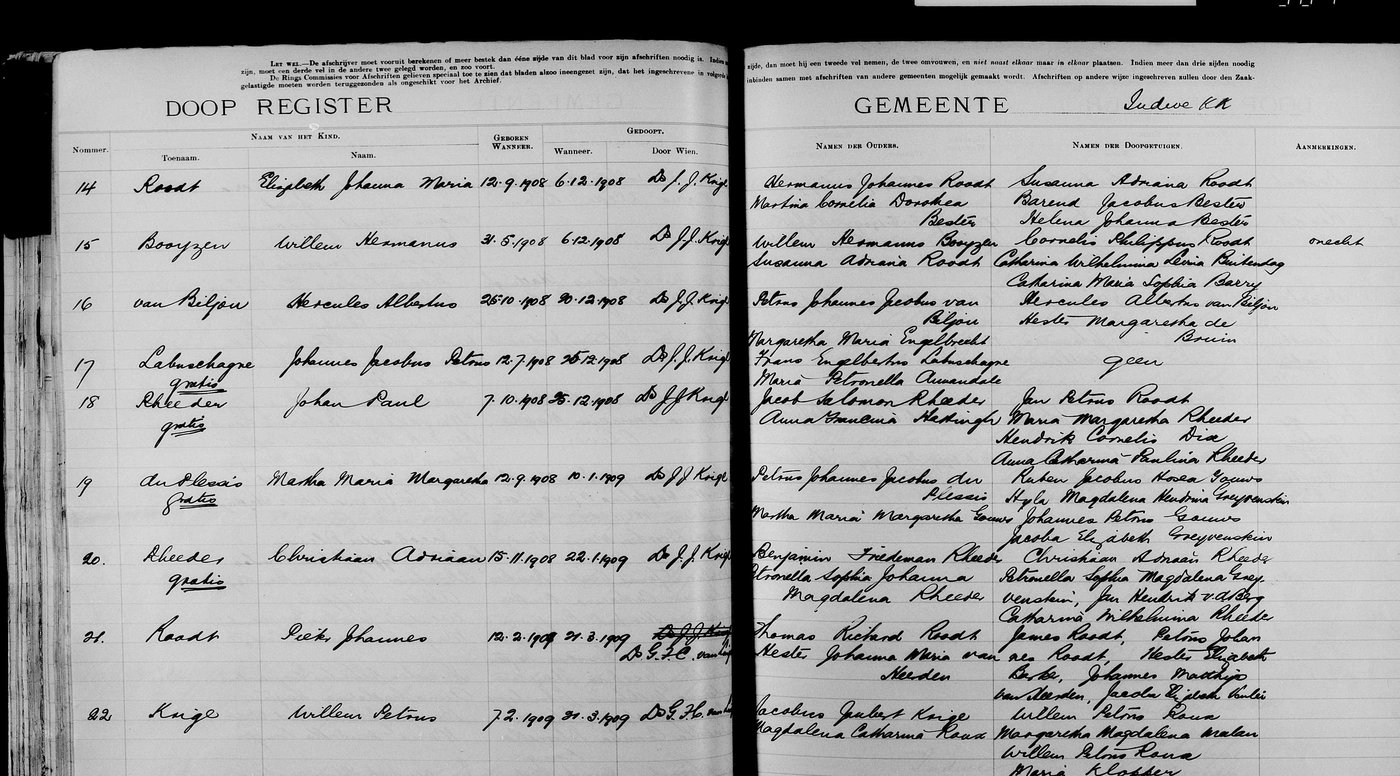 LET WEL.—De afschrijver moet vooruit berekenen of meer bestek dan ééne zijde van dit blad voor zijn afschriften noodig is. Indien
zijn, moet een derde vel in de andere twee gelegd worden, en zoo voort.
De Rings Commissies voor Afschriften gelieven speciaal toe te zien dat bladen alzoo ineengezet zijn, dat het ingeschrevene in volgorde
gelastigde moeten worden teruggezonden als ongeschikt voor het Archief.
DOOP REGISTER
Nommer. NAAM VAN HET KIND. GEBOREN WANNEER. GEDOOPT.
Toenaam. Naam. Wanneer. Door Wien.
14 Roodt Elizabeth Johanna Maria 12.9.1908 6.12.1908 Ds J. J. Krige
15 Booyzen Willem Hermanus 31.5.1908 6.12.1908 Ds J J. Krige
16 van Biljon Hercules Albertus 25.10.1908 20.12.1908 Ds J. J. Krige
17 Labuschagne Johannes Jacobus Petrus 12.7.1908 25.12.1908 Ds J. J. Krige
gratis
18 Rheeder Johan Paul 7.10.1908 25.12.1908 Ds J J Krige
gratis
19 du Plessis Martha Maria Margaretha 12.9.1908 10.1.1909 Ds J J Krige
gratis
20. Rheeder Christiaan Adriaan 15.11.1908 22.1.1909 Ds J. J. Krige
gratis
21. Roodt Pieter Johannes 12.2.1909 21.3.1909 Ds J J Krige
Ds G. F. C. van
22 Krige Willem Petrus 7.2.1909 21.3.1909 Ds G. F. C. van
zijde, dan moet hij een tweede vel nemen, de twee omvouwen, en niet naast elkaar maar in elkaar plaatsen. Indien meer dan drie zijden noodig
inbinden samen met afschriften van andere gemeenten mogelijk gemaakt wordt. Afschriften op andere wijze ingeschreven zullen door den Zaak-
GEMEENTE Indwe KK
NAMEN DER OUDERS. NAMEN DER DOOPGETUIGEN. AANMERKINGEN.
Hermanus Johannes Roodt Susanna Adriana Roodt
Martina Cornelia Dorothea Barend Jacobus Bester
Bester Helena Johanna Bester
Willem Hermanus Booyzen Cornelis Philippus Roodt onecht
Susanna Adriana Roodt Catharina Wilhelmina Levina Buitendag
Catharina Maria Sophia Barry
Petrus Johannes Jacobus van Hercules Albertus van Biljon
Biljon Hester Margaretha de
Margaretha Maria Engelbrecht Bruin
Frans Engelbertus Labuschagne geen
Maria Petronella Annandale
Jacob Salomon Rheeder Jan Petrus Roodt
Anna Francina Hattingh Maria Margaretha Rheeder
Hendrik Cornelis
Anna Catharina Paulina Rheeder
Petrus Johannes Jacobus du Ruben Jacobus Hosea Gouws
Plessis Hyla Magdalena Hendrina Greyvenstein
Martha Maria Margaretha Gouws Johannes Petrus Gouws
Jacoba Elizabeth Greyvenstein
Benjamin Friedeman Rheeder Christiaan Adriaan Rheeder
Petronella Sophia Johanna Petronella Sophia Magdalena Grey
Magdalena Rheeder venstein, Jan Hendrik v.d. Berg
Catharina Wilhelmina Rheeder
Thomas Richard Roodt James Roodt, Petrus Johan
Hester Johanna Maria van nes Roodt, Hester Elizabeth
Heerden Johannes Matthijs
van Heerden, Jacoba Elizabeth
Jacobus Joubert Krige Willem Petrus Roux
Magdalena Catharina Roux Margaretha Magdalena Malan
Willem Petrus Roux
Maria Klopper